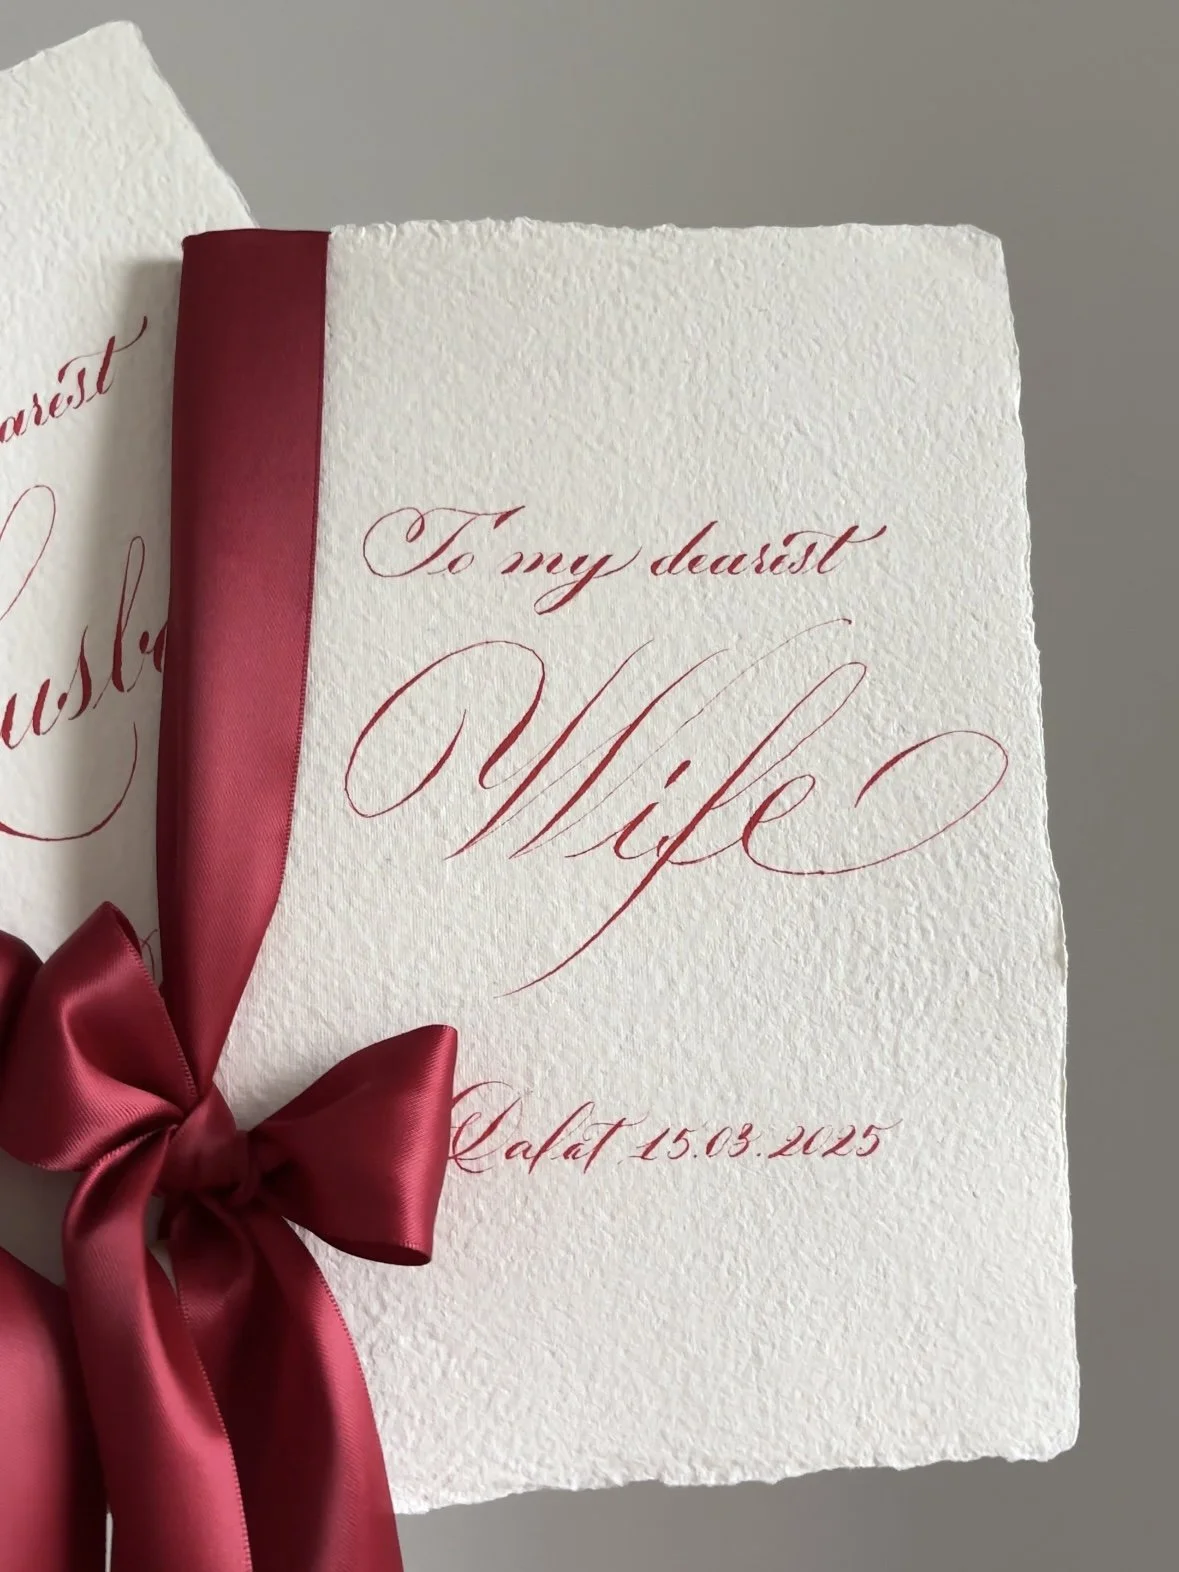 arest
usba
To my dearest
Wife
Dalat 15.03.2025